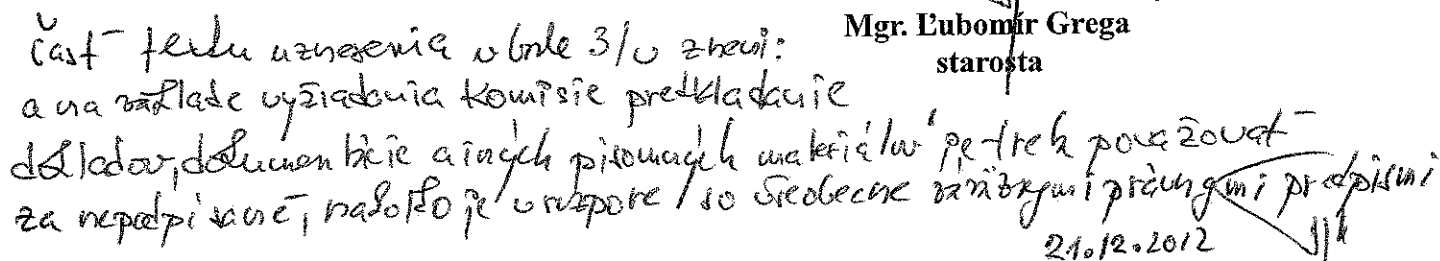 Mgr. Ľubomír Grega
starosta
časť textu uznesenia v bode 3/ v znení:
a na základe vyžiadania komisie predkladanie
dokladov, dokumentácie a iných písomných materiálov" je treba považovať
za nepodpísané, nakoľko je v rozpore so všeobecne záväznými právnymi predpismi
21.12.2012